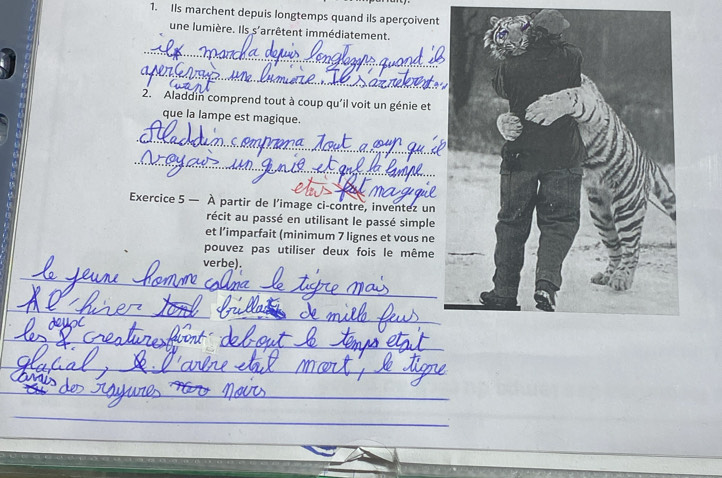 1. Ils marchent depuis longtemps quand ils aperçoivent
une lumière. Ils s'arrêtent immédiatement.
ils marcha depuis longtemps quand ils
une lumière. Ils
2. Aladdin comprend tout à coup qu'il voit un génie et
que la lampe est magique.
Aladdin comprena tout a coup qu'il
voyais un genie et que la lampe
etais magique
Exercice 5 — À partir de l'image ci-contre, inventez un
récit au passé en utilisant le passé simple
et l'imparfait (minimum 7 lignes et vous ne
pouvez pas utiliser deux fois le même
verbe).
le jeune homme calina le tigre mais
l'hiver brilla de mille feus
les deux creatures debout le temps etait
glacial, l'arbre etait mort, le tigre
des rayures noirs